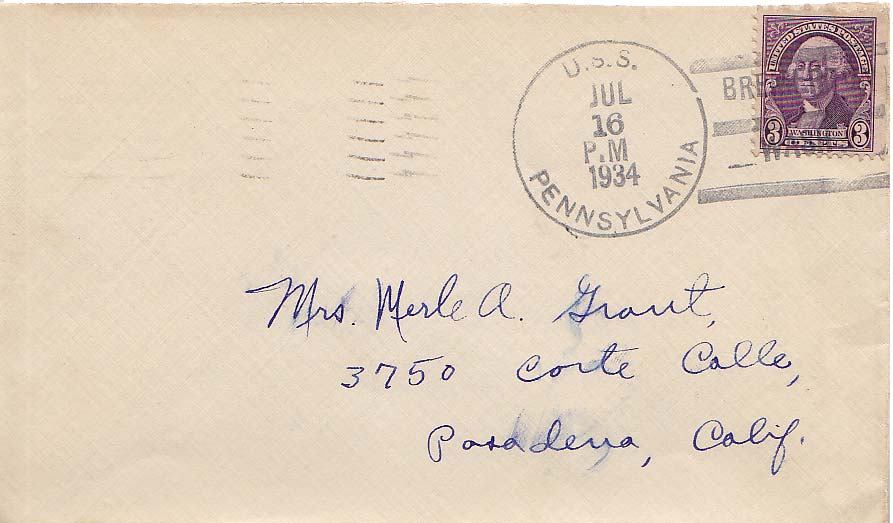 U.S.S.
JUL
16
P.M
1934
PENNSYLVANIA
UNITED STATES POSTAGE
3 WASHINGTON 3
CENTS
WASH
Mrs. Merle A. Grant,
3750 Corte Calle,
Pasadena, Calif.